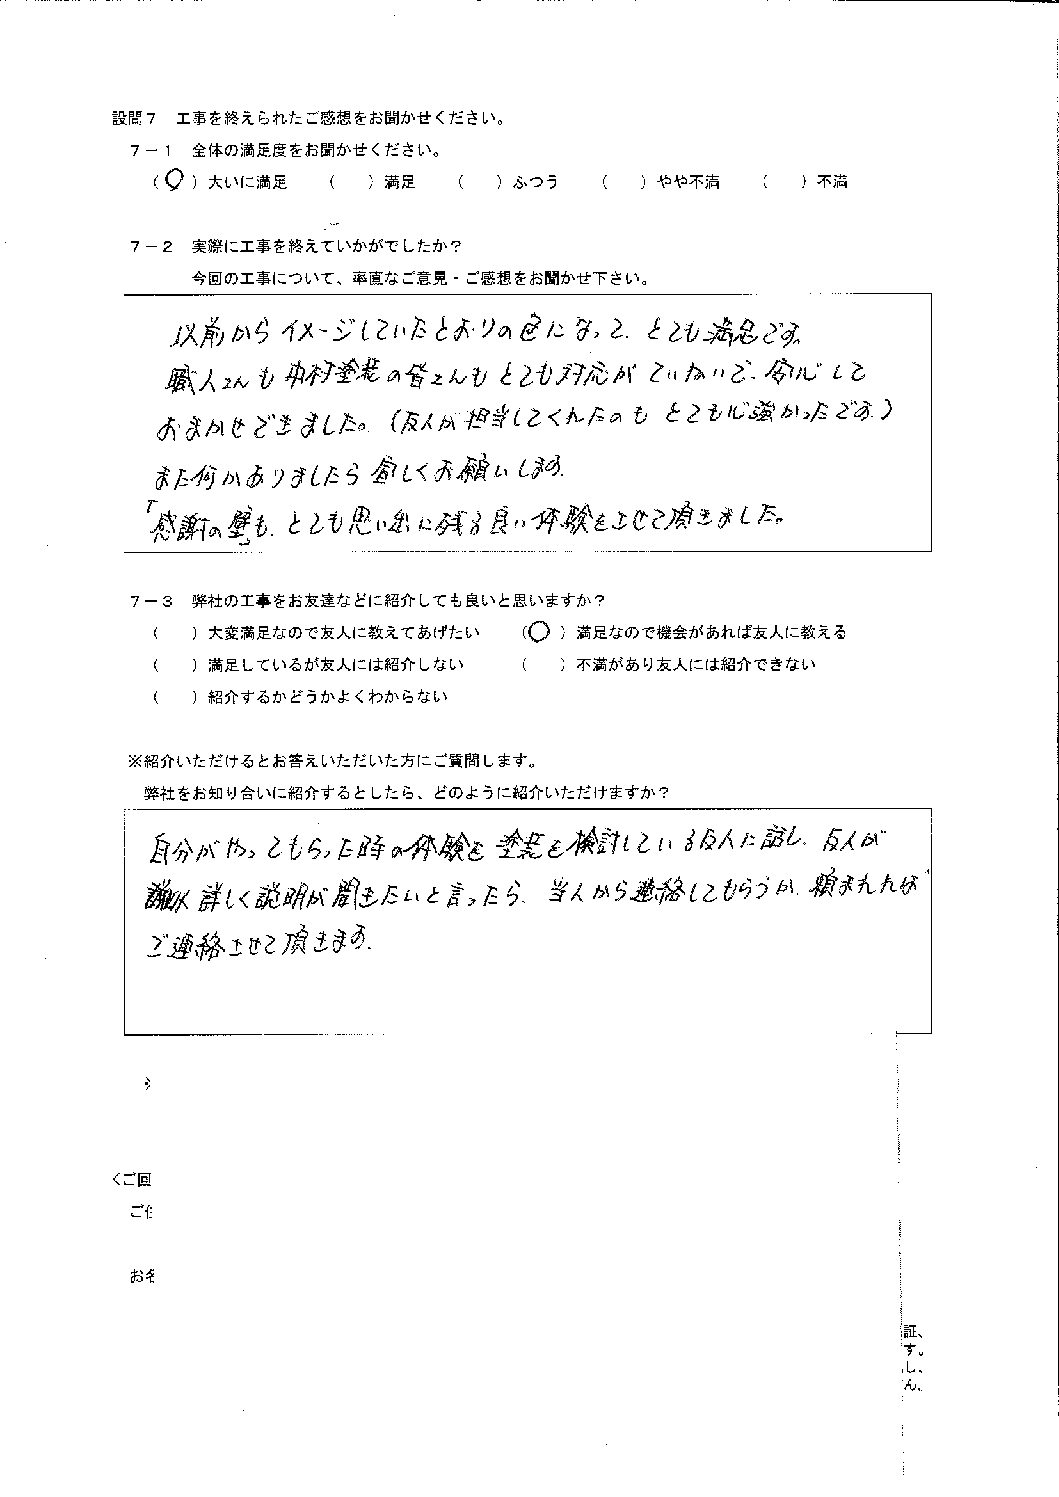 設問7 工事を終えられたご感想をお聞かせください。
7－1 全体の満足度をお聞かせください。
(○)大いに満足 ( )満足 ( )ふつう ( )やや不満 ( )不満
7－2 実際に工事を終えていかがでしたか?
今回の工事について、率直なご意見・ご感想をお聞かせ下さい。
以前からイメージしていたとおりの色になって、とても満足です。
職人さんも中村塗装の皆さんもとても対応がていねいで、安心して
おまかせできました。(友人が担当してくれたのもとても心強かったです。)
また何かありましたら宜しくお願いします。
「感謝の壁」も、とても思い出に残る良い体験をさせて頂きました。
7－3 弊社の工事をお友達などに紹介しても良いと思いますか?
( )大変満足なので友人に教えてあげたい (○)満足なので機会があれば友人に教える
( )満足しているが友人には紹介しない ( )不満があり友人には紹介できない
( )紹介するかどうかよくわからない
※紹介いただけるとお答えいただいた方にご質問します。
弊社をお知り合いに紹介するとしたら、どのように紹介いただけますか?
自分がやってもらった時の体験を塗装を検討している友人に話し、友人が
詳しく説明が聞きたいと言ったら、当人から連絡してもらうか、頼まれれば
ご連絡させて頂きます。
<ご回
ご住
お名
証、
す。
し、
ん。